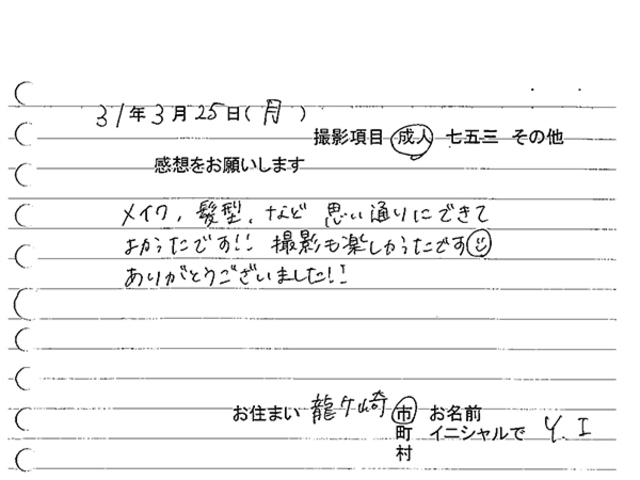 31年3月25日(月)
撮影項目 成人 七五三 その他
感想をお願いします
メイク、髪型、など 思い通りにできて
よかったです!! 撮影も楽しかったです☺
ありがとうございました!!
お住まい 龍ケ崎 市 お名前
町 イニシャルで Y.I
村